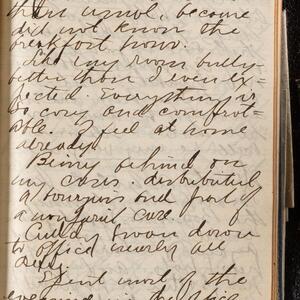 than usual, because
did not know the
breakfast hour.
Like my room bully-
better than I ever ex-
pected. Everything is
so cosy and comfort-
able. I feel at home
already.
Being behind on
my cases. distributed
a bourgeois and part of
a nonpareil case.
Swan down
to office nearly all
day.
Spent most of the
evening in